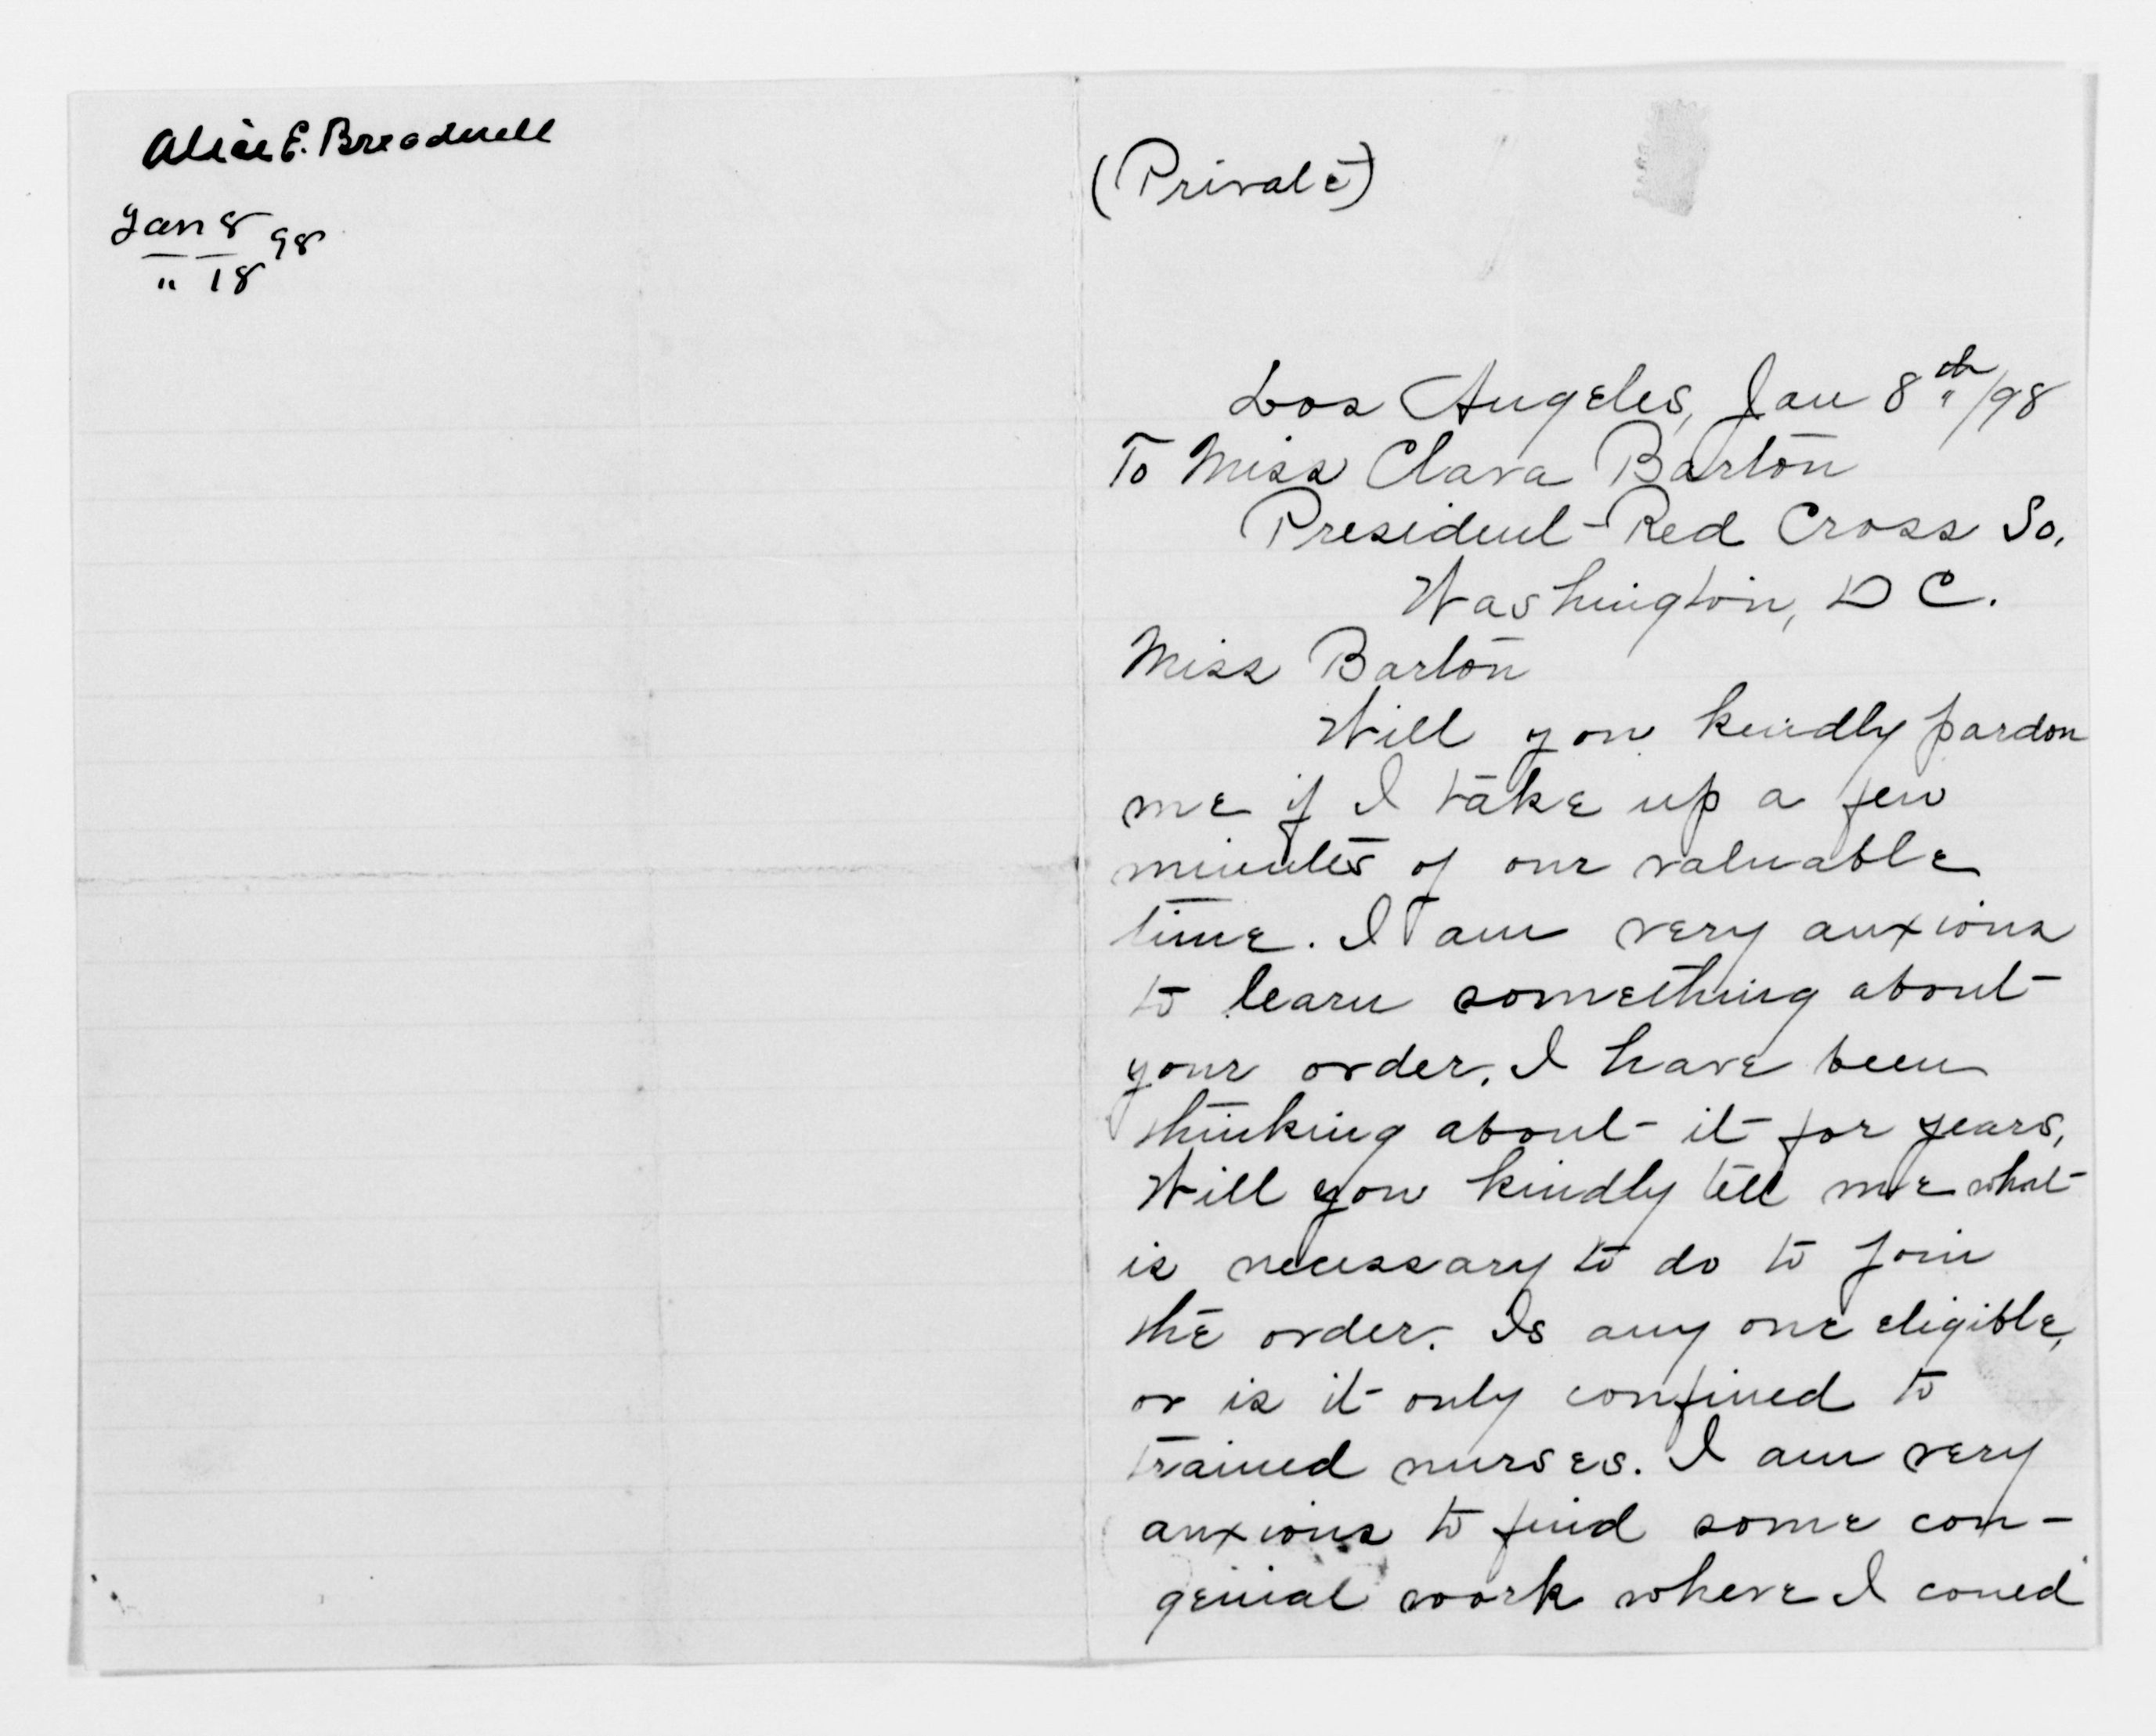 Alice E. Breadwell
Jan 8 98
" 18
(Private)
Los Angeles, Jan 8th/98
To Miss Clara Barton
President Red Cross So.
Washington, D C.
Miss Barton
Will you kindly pardon
me if I take up a few
minutes of our valuable
time. I am very anxious
to learn something about
your order. I have been
thinking about it for years,
Will you kindly tell me what
is necessary to do to join
the order. Is any one eligible,
or is it only confined to
trained nurses. I am very
anxious to find some con-
genial work where I could